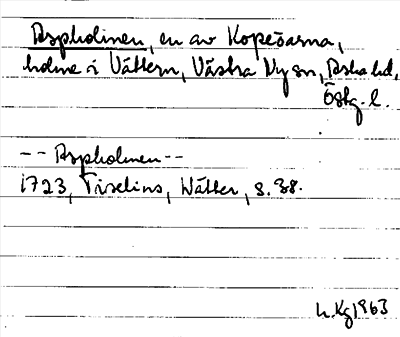 Aspholmen, en av Kopeöarna,
holme i Vättern, Västra Ny sn, Aska hd,
Östg. l.
-- Aspholmen --
1723, Tiselius, Wätter, s. 38.
h.Kg 1963